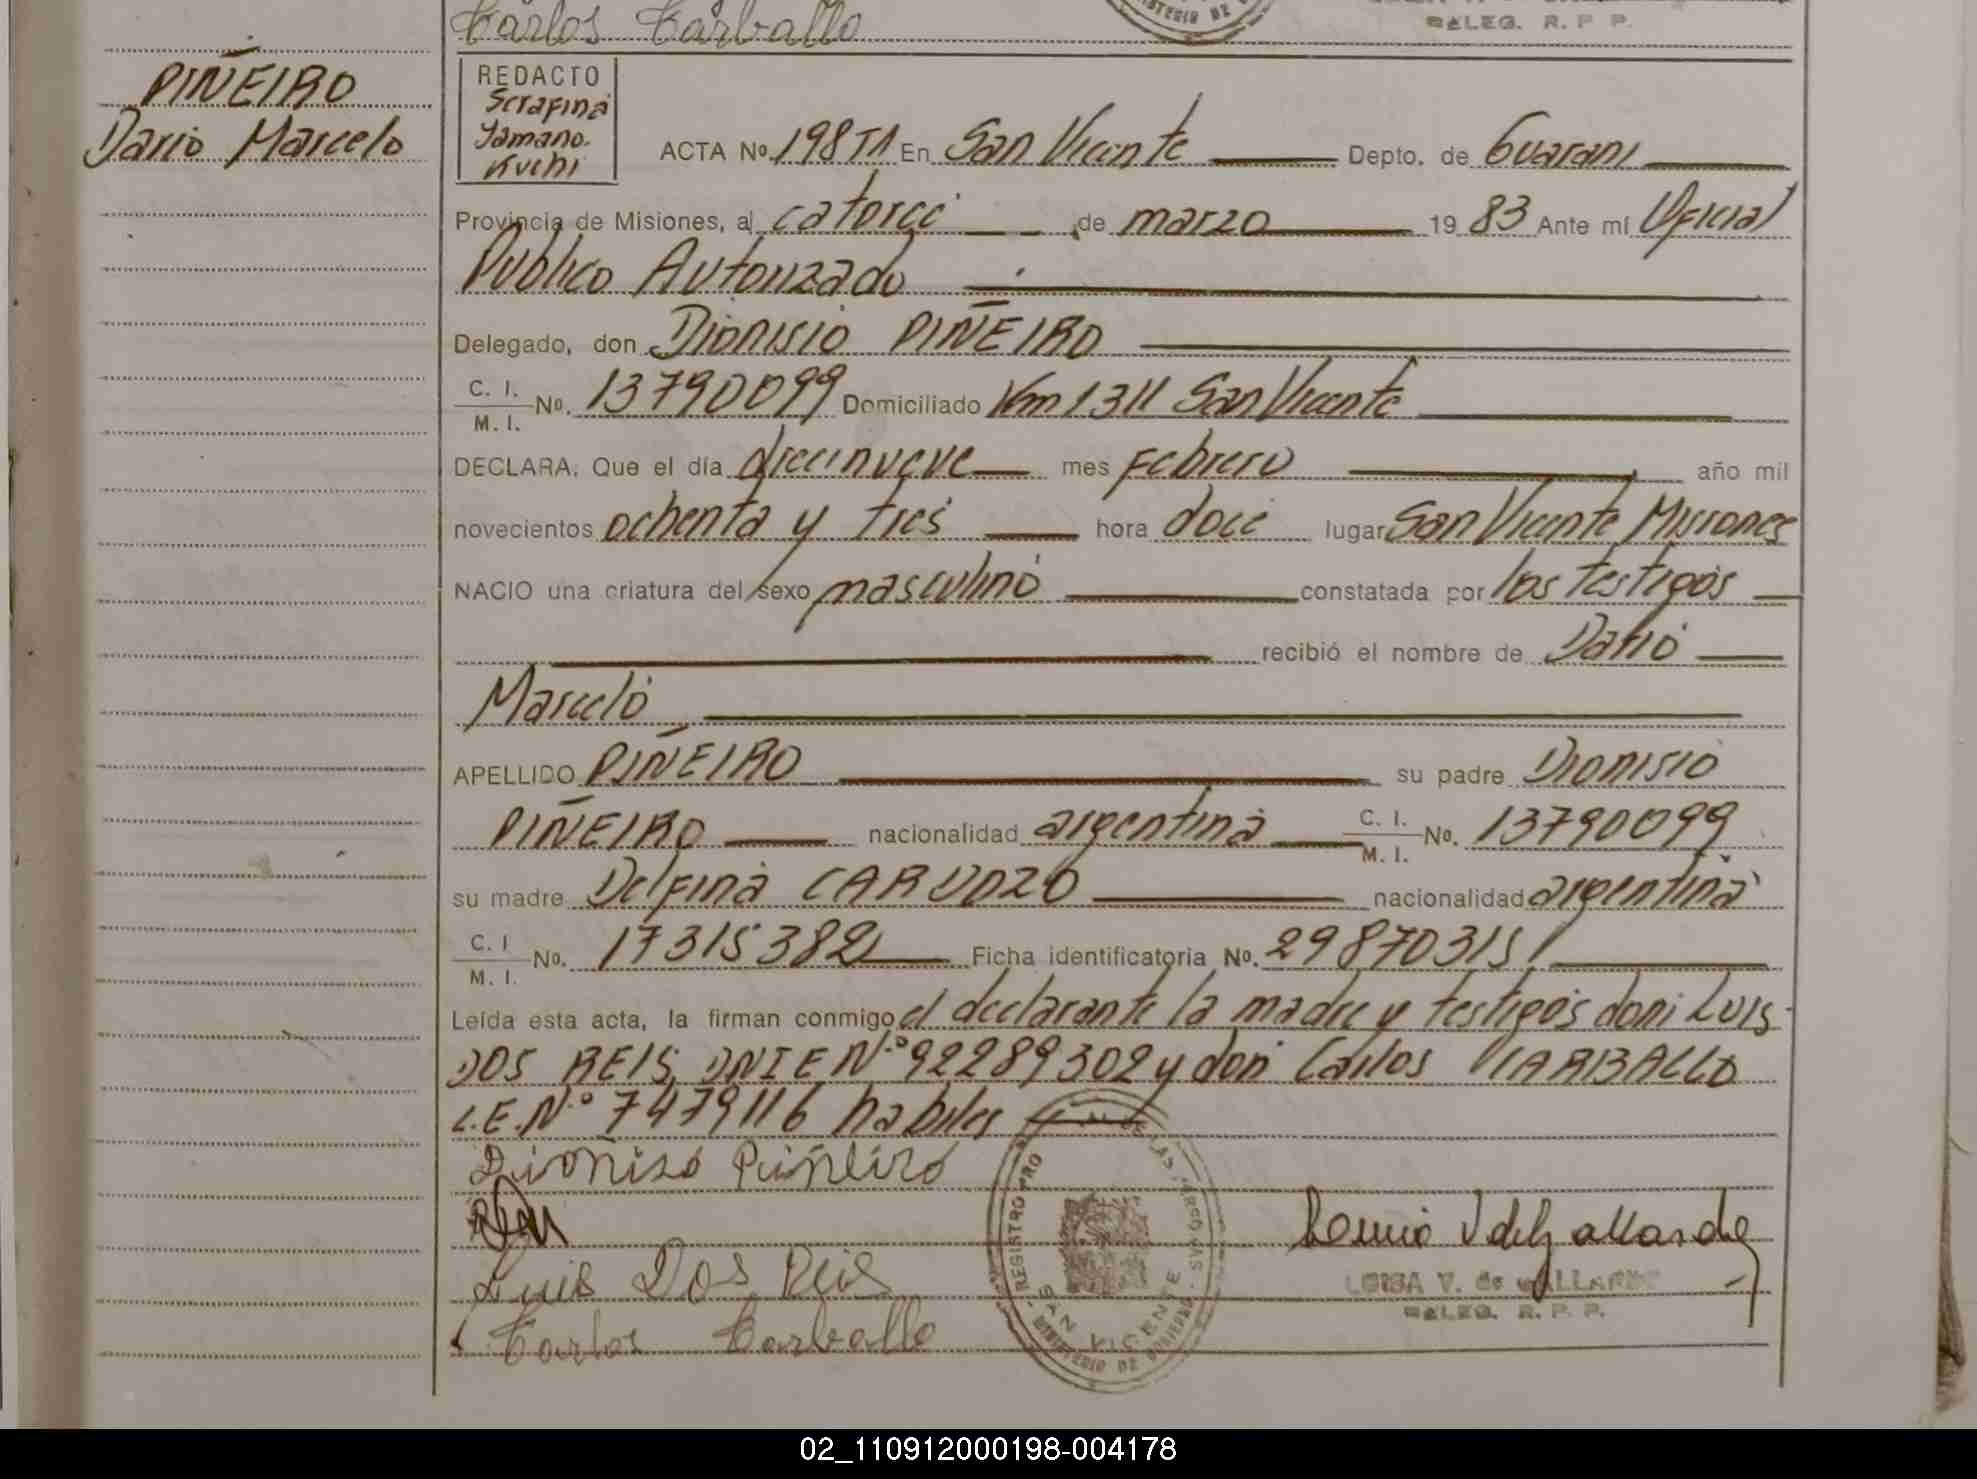 Carlos Carballo
DELEG. R. P. P.
PIÑEIRO
Dario Marcelo
REDACTO
Serafina
Yamano.
Kuchi
ACTA No. 198 T1 En San Vicente Depto. de Guarani
Provincia de Misiones, a catorce de marzo 1983 Ante mí Oficial
Publico Autorizado
Delegado, don Dionisio PIÑEIRO
C. I.
M. I. No. 13790099 Domiciliado Km 1311 San Vicente
DECLARA: Que el día diecinueve mes Febrero año mil
novecientos ochenta y tres hora doce lugar San Vicente Misiones
NACIO una criatura del sexo masculino constatada por los testigos
recibió el nombre de Dario
Marcelo
APELLIDO PIÑEIRO su padre Dionisio
PIÑEIRO nacionalidad argentina C. I. M. I. No. 13790099
su madre Delfina CARDOZO nacionalidad argentina
C. I M. I. No. 17315382 Ficha identificatoria No. 29870315
Leída esta acta, la firman conmigo el declarante la madre y testigos don: Luis
DOS REIS, DNIE Nº 92289302 y don Carlos CARBALLO
L.E. Nº 7479116 habiles
Dioniso Piñeiro
Luis Dos Reis
Carlos Carballo
REGISTRO PRO DE LAS PERSONAS
SAN VICENTE
MINISTERIO DE GOBIERNO
LUISA V. de GALLARDO
DELEG. R. P. P.
02_110912000198-004178